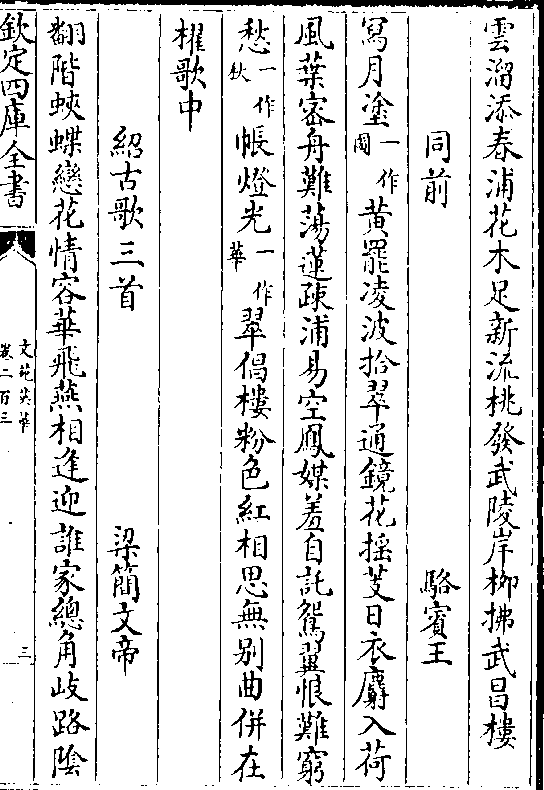 雲溜添春浦花木足新流桃發武陵岸柳拂武昌樓
同前 駱賓王
寫月塗一作圖黄罷凌波拾翠通鏡花揺芰日衣麝入荷
風葉宻舟難蕩蓮疎浦易空鳳媒羞自託鴛翼恨難窮
愁一作秋帳燈光一作華翠倡樓粉色紅相思無别曲併在
櫂歌中
紹古歌三首 梁簡文帝
翻階蛺蝶戀花情容華飛燕相逢迎誰家總角岐路隂
欽定四庫全書
文苑英華
卷二百三
三